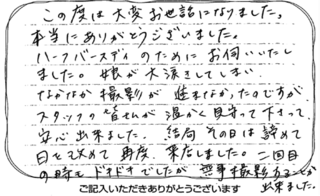 この度は大変お世話になりました。
本当にありがとうございました。
ハーフバースデイのためにお伺いいたし
ました。娘が大泣きしてしまい
なかなか撮影が進まなかったのですが
スタッフの皆さんが温かく見守って下さって
安心出来ました。結局その日は諦めて
日を改めて再度、来店しました。二回目
の時もドキドキでしたが無事撮影することが
出来ました。
ご記入いただきありがとうございます